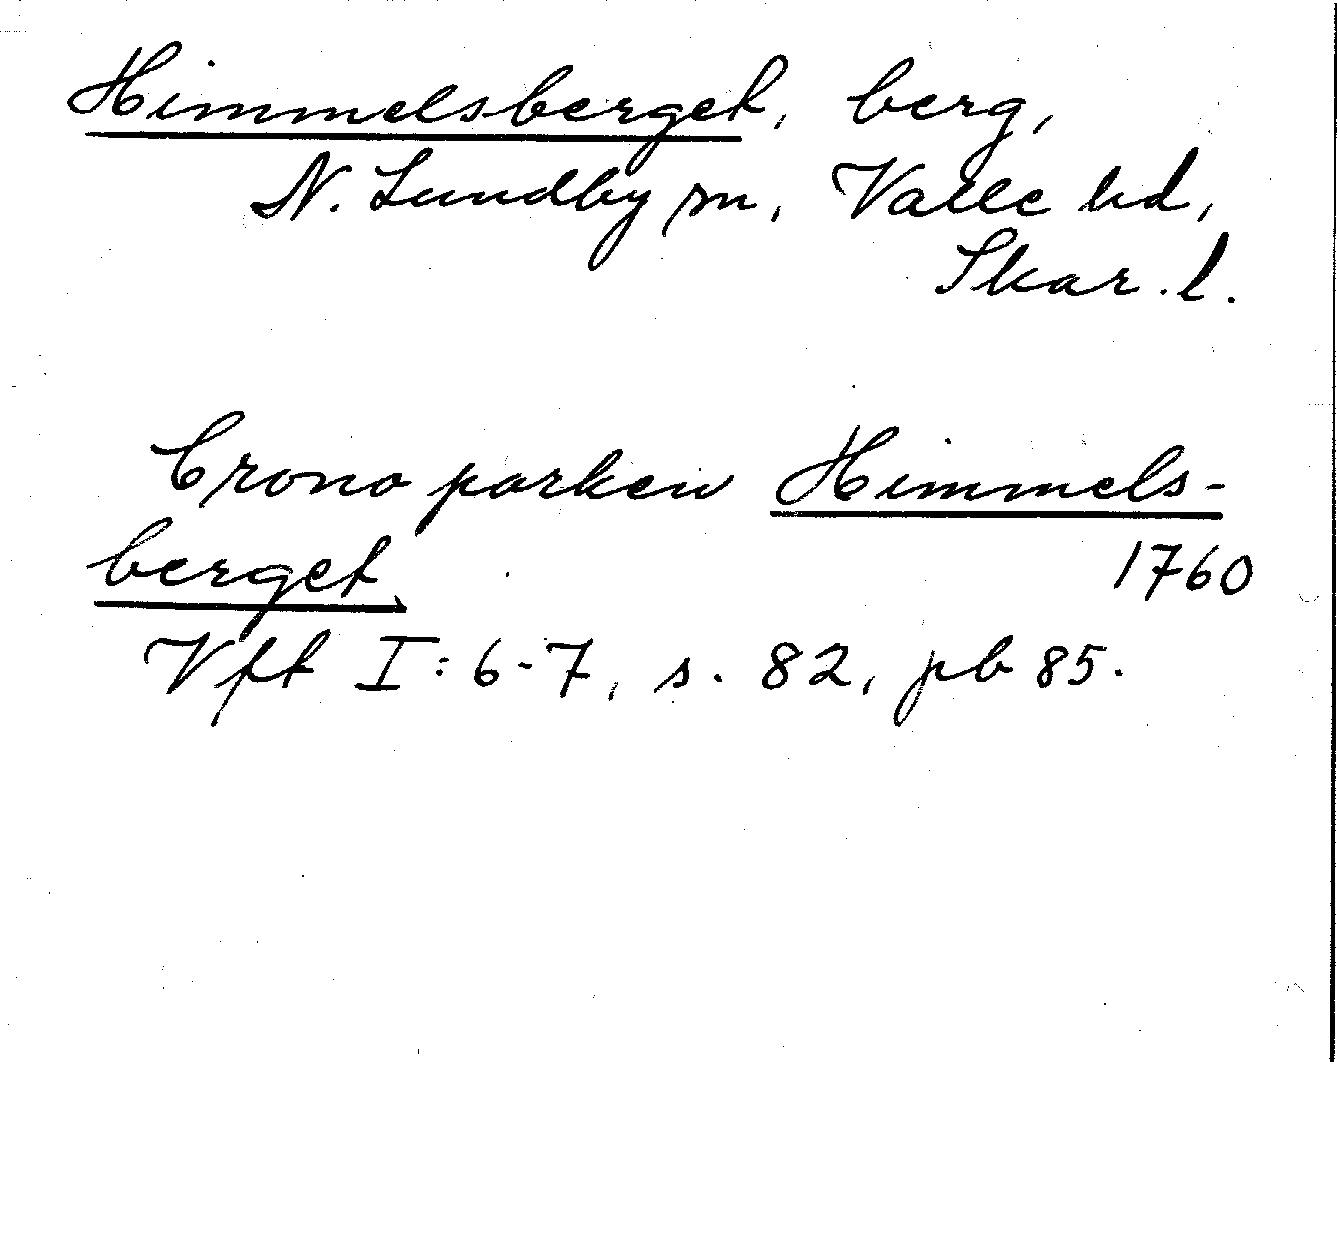 Himmelsberget, berg,
N. Lundby sn, Valle hd,
Skar. l.
Crono parken Himmels-
berget
1760
Vft I: 6-7, s. 82, pb 85.